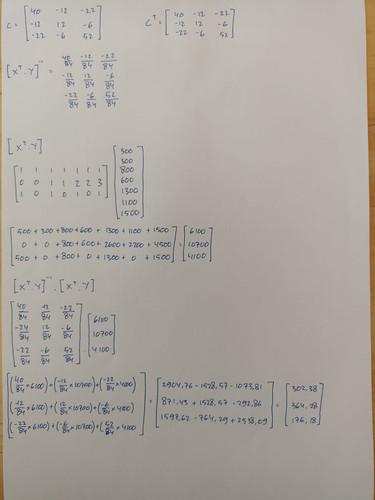 C = [ 40 -12 -22    Cᵀ = [ 40 -12 -22
-12 12 -6    -12 12 -6
-22 -6 52 ]    -22 -6 52 ]
[xᵀ.Y]⁻¹ = 40/84 -12/84 -22/84
-12/84 12/84 -6/84
-22/84 -6/84 52/84
[xᵀ.Y]
[ 1 1 1 1 1 1 1
0 0 1 1 2 2 3
1 0 1 0 1 0 1 ]
[ 500
300
800
600
1300
1100
1500 ]
[ 500 + 300 + 800 + 600 + 1300 + 1100 + 1500
0 + 0 + 800 + 600 + 2600 + 2200 + 4500
500 + 0 + 800 + 0 + 1300 + 0 + 1500 ] = [ 6100
10700
4100 ]
[xᵀ.Y]⁻¹ . [xᵀ.Y]
[ 40/84 12/84 -22/84
-24/84 12/84 -6/84
-22/84 -6/84 52/84 ] [ 6100
10700
4100 ]
[ (40/84 × 6100) + (-12/84 × 10700) + (-22/84 × 4100)
(-12/84 × 6100) + (12/84 × 10700) + (-6/84 × 4100)
(-22/84 × 6100) + (-6/84 × 10700) + (52/84 × 4100) ] = [ 2904,76 - 1528,57 - 1073,81
871,43 + 1528,57 - 292,86
1597,62 - 764,29 + 2538,09 ] = [ 302,38
364,28
176,18 ]